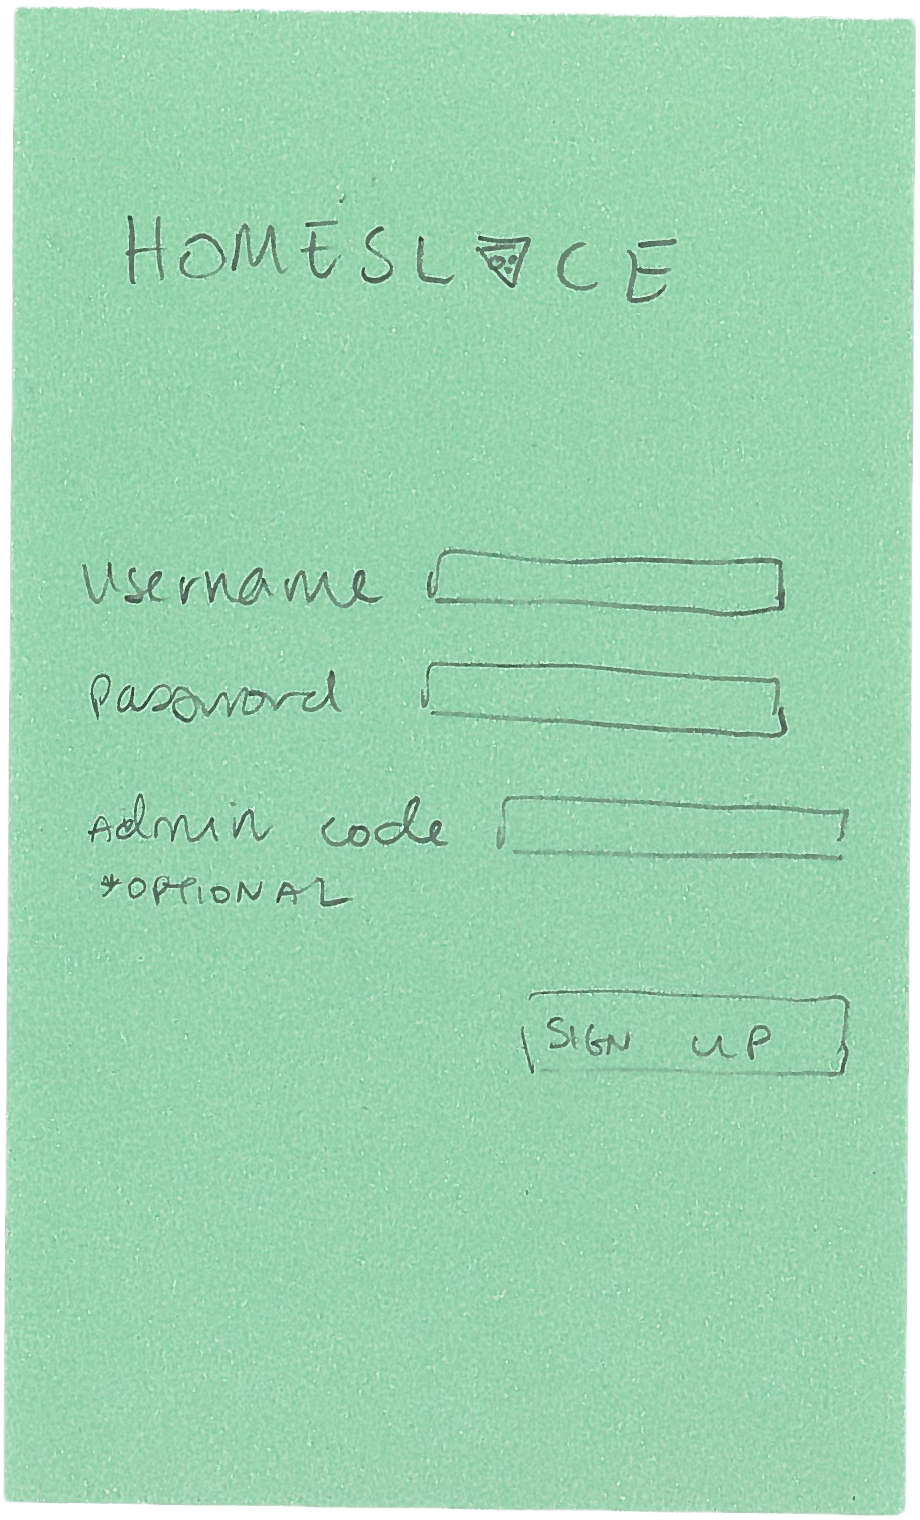 HOMESLCE
Username
Password
Admin code
*OPTIONAL
SIGN UP